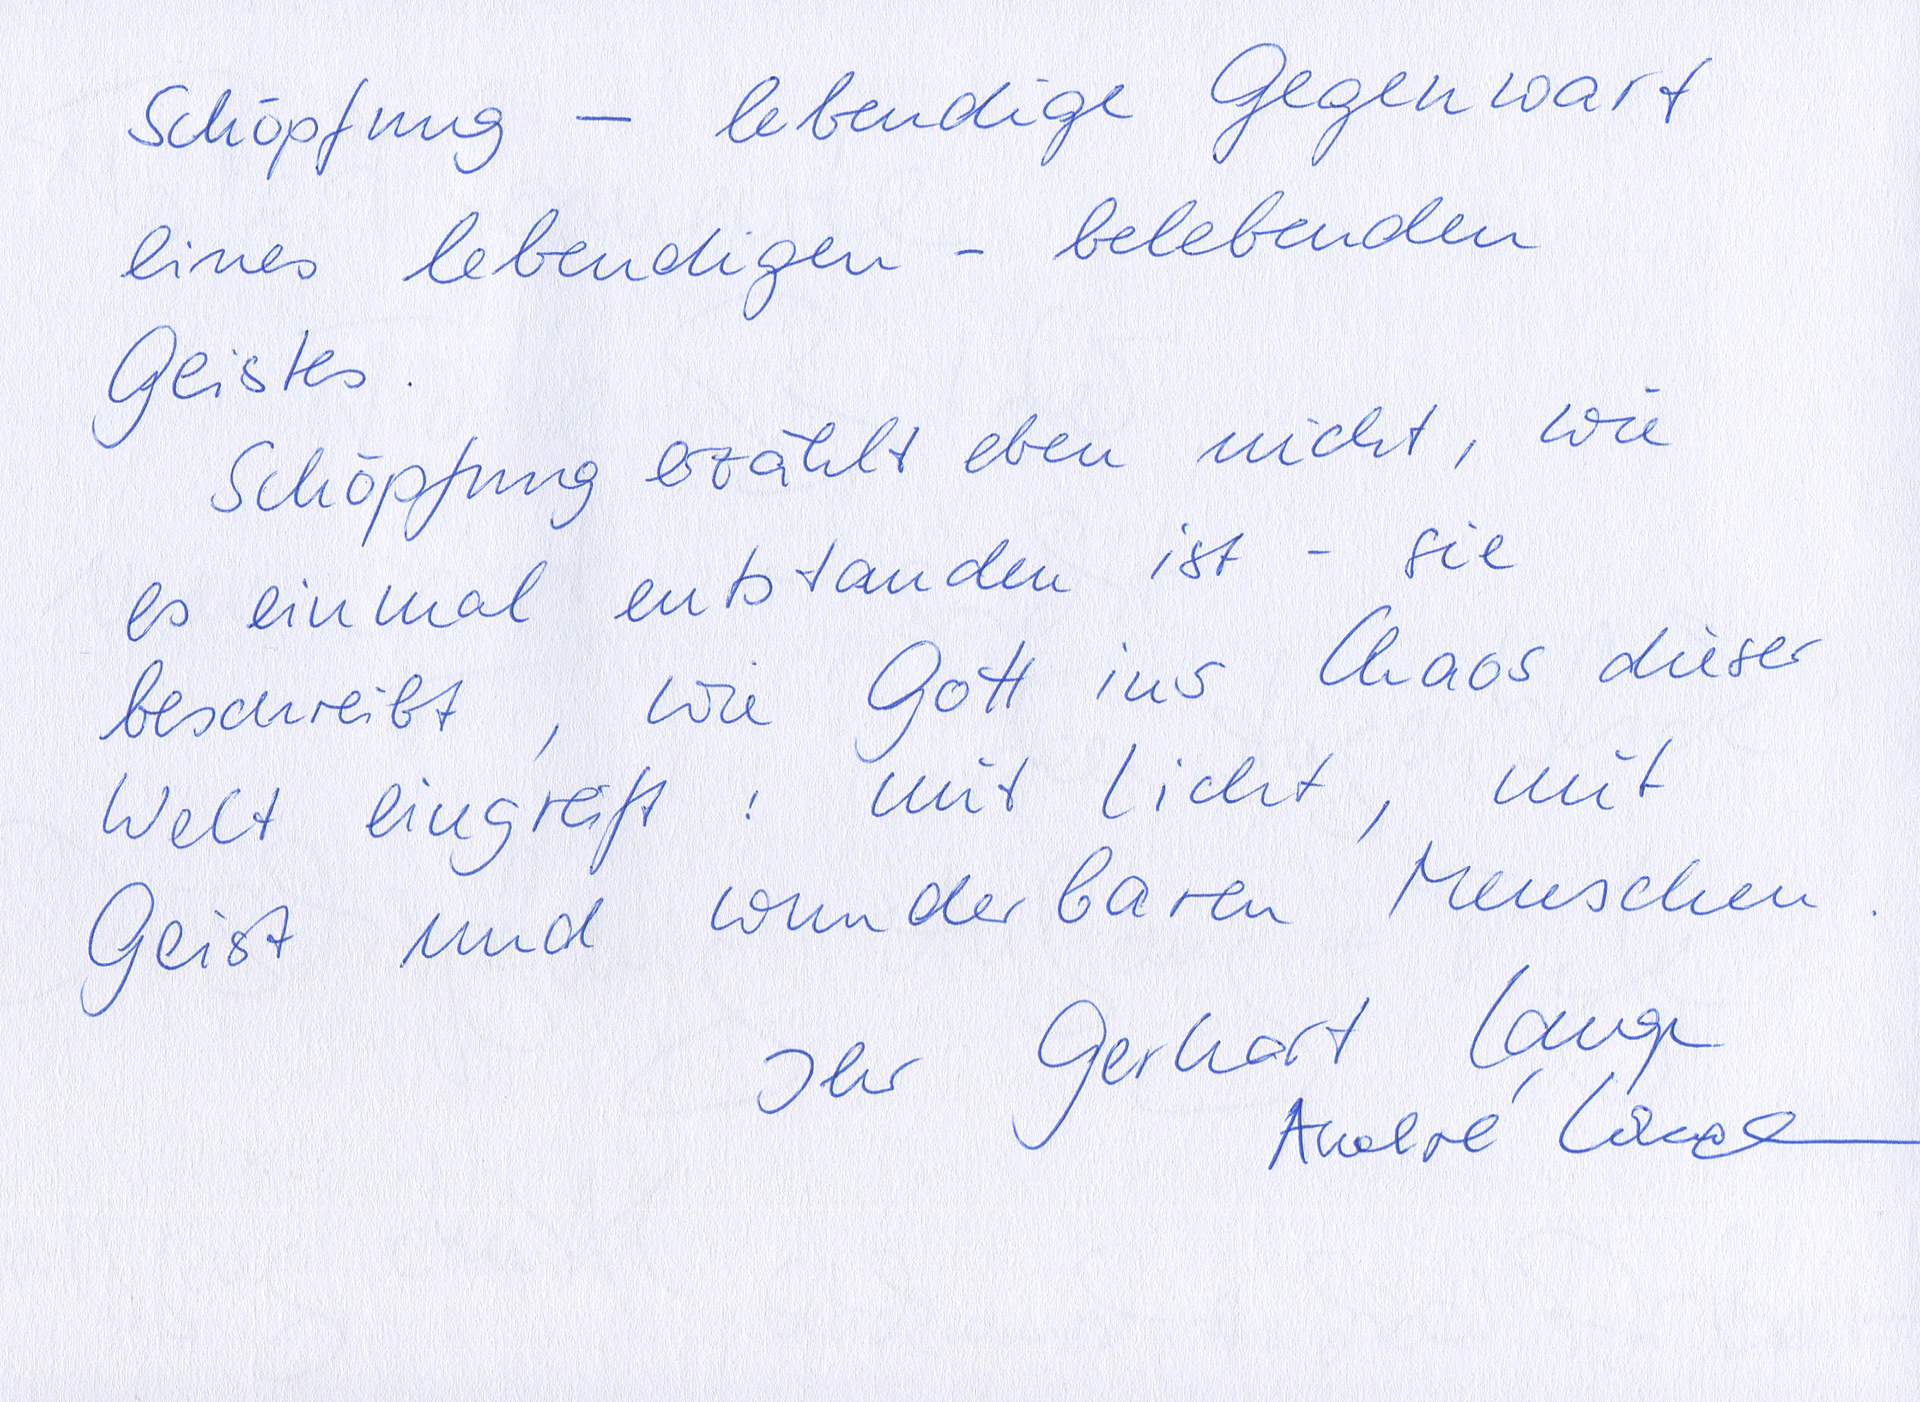 Schöpfung – lebendige Gegenwart
eines lebendigen - belebenden
Geistes.
Schöpfung erzählt eben nicht, wie
es einmal entstanden ist - sie
beschreibt, wie Gott ins Chaos dieser
Welt eingreift: mit Licht, mit
Geist und wunderbaren Menschen.
Ihr Gerhart Lange
André Lange